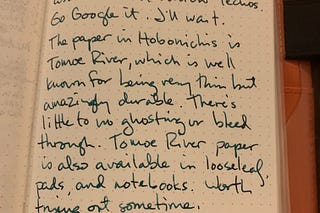 Go Google it. I'll wait.
The paper in Hobonichis is
Tomoe River, which is well
known for being very thin but
amazingly durable. There's
little to no ghosting or bleed
through. Tomoe River paper
is also available in looseleaf,
pads, and notebooks. Worth
trying out sometime.